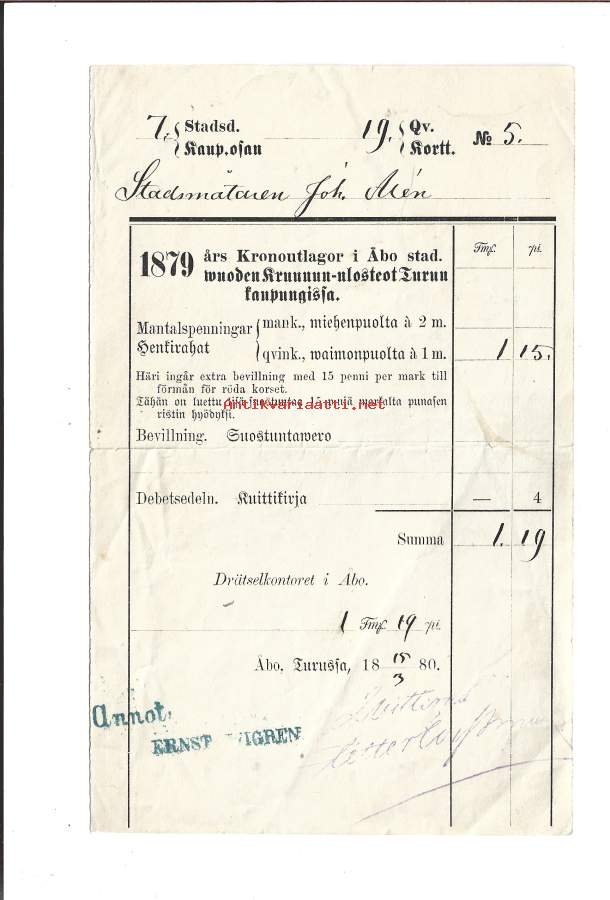 7. Stadsd. 19. Qv.
Kaup.osan Kortt. № 5.
Stadsmätaren Joh. Alén
1879 års Kronoutlagor i Åbo stad. Fmf. pi.
wuoden Kruunun-ulosteot Turun
kaupungissa.
Mantalspenningar mank., miehenpuolta à 2 m.
Henkirahat qvink., waimonpuolta à 1 m. 1 15.
Häri ingår extra bevillning med 15 penni per mark till
förmån för röda korset.
Tähän on luettu lisä suostuntaa 15 penniä markalta punasen
Antikvariaatti.net
ristin hyödyksi.
Bevillning. Suostuntawero
Debetsedeln. Kuittikirja — 4
Summa 1. 19
Drätselkontoret i Åbo.
1 Fmf. 19 pi.
Åbo, Turussa, 18 15/3 80.
Annot.
ERNST